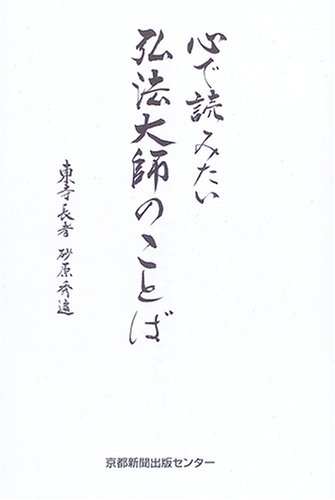 心で読みたい
弘法大師のことば
東寺長者 砂原秀遍
京都新聞出版センター